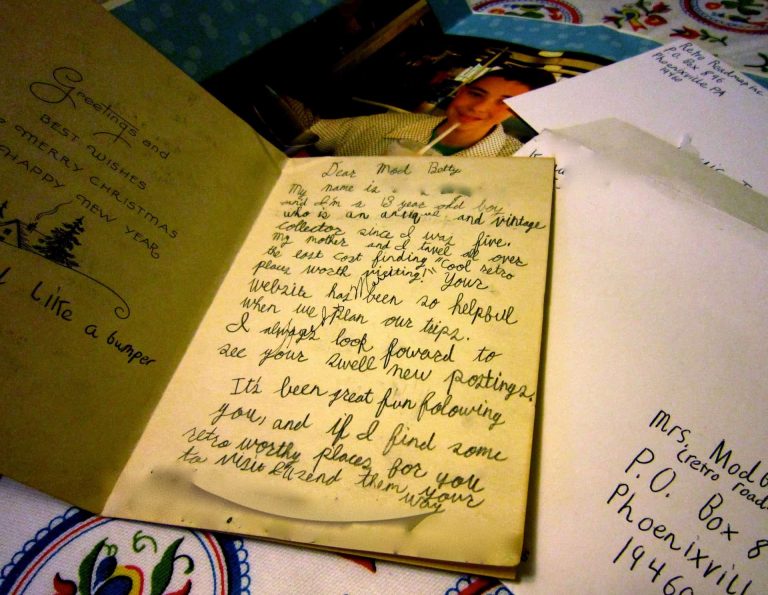 Greetings and
BEST WISHES
MERRY CHRISTMAS
HAPPY NEW YEAR
Like a bumper
Dear Mod Betty
My name is
and I'm a 13 year old boy
who is an antique and vintage
collector since I was five.
My mother and I tavel all over
the east cost finding "Cool retro
places worth visiting!" Your
website has been so helpful
when we plan our trips.
I always look foward to
see your swell new postings.
It's been great fun folowing
you, and if I find some
retro worthy places for you
to visit I'll send them your
way
Retro Roadmap
P.O. Box 846
Phoenixville PA
19460
Mrs. Mod B
(retro road
P.O. Box 8
Phoenixvill
19460